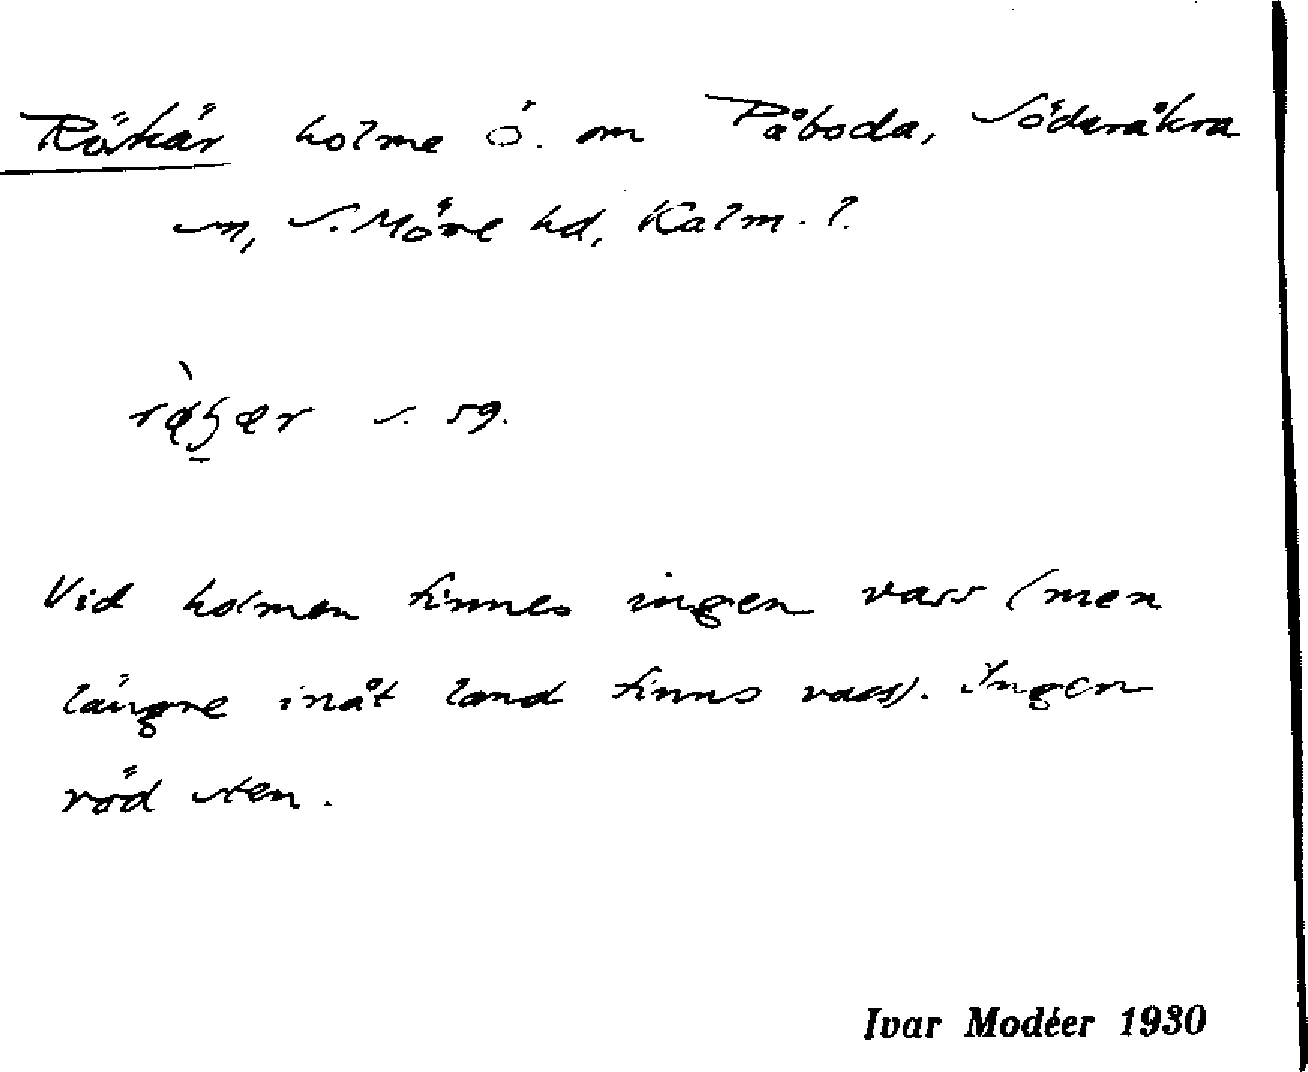 Rökär holme ö. om Påboda, Söderåkra
sn, S. Möre hd, Kalm. l.
s. 59.
Vid holmen finnes ingen vass (men
längre inåt land finns vass). Ingen
röd sten.
Ivar Modéer 1930